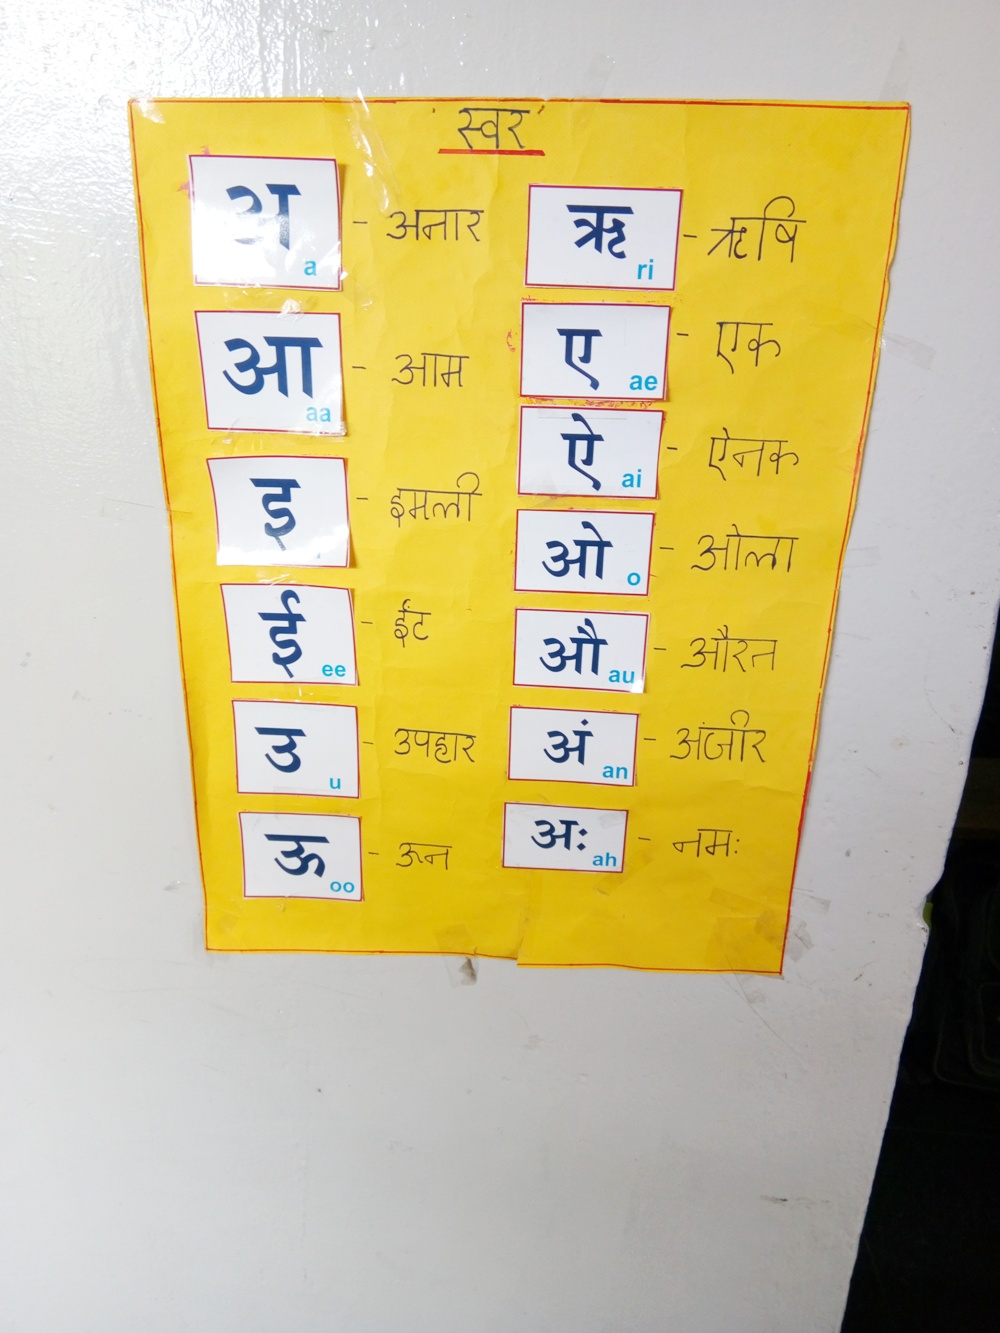 'स्वर'
अ a - अनार
आ aa - आम
इ - इमली
ई ee - ईंट
उ u - उपहार
ऊ oo - ऊन
ऋ ri - ऋषि
ए ae - एक
ऐ ai - ऐनक
ओ o - ओला
औ au - औरत
अं an - अंजीर
अः ah - नमः